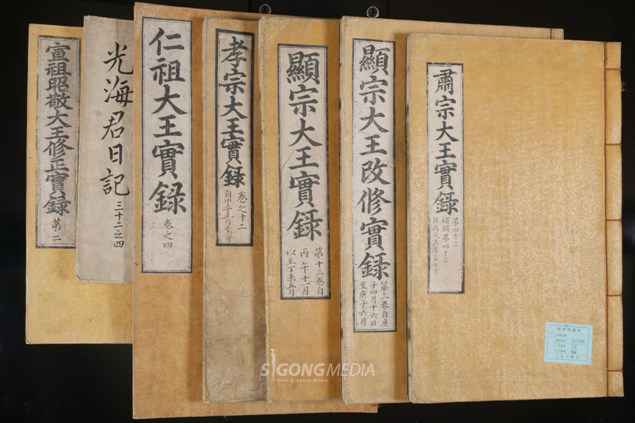 宣祖昭敬大王修正實錄
第二
光海君日記
三十二之四
仁祖大王實錄
卷之四
孝宗大王實錄
卷之十二
顯宗大王實錄
第十三卷自
丙午十一月
以至丁未五月
顯宗大王改修實錄
第三卷自庚
子四月十六日
至庚子六月
肅宗大王實錄
第四十三
補闕第四十三
SIGONG MEDIA